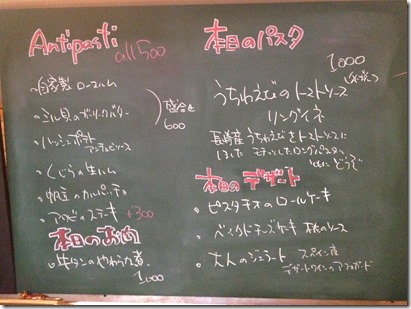 Antipasti
all 500
・自家製 ロースハム
・ムール貝のガーリックバター
・バーニャポート
アンチョビソース
・くじらの生ハム
・帆立のカルパッチョ
・アワビのステーキ +300
盛合せ
600
本日のお肉
・牛タンのやわらか煮
1,000
本日のパスタ
1,000
うちわえびのトマトソース
リングイネ
長崎産 うちわえびをトマトソースに
しました
本日のデザート
・ピスタチオのロールケーキ
・ベイクドチーズケーキ 桃のソース
・大人のジェラート スペイン産
デザートワインのアフォガード